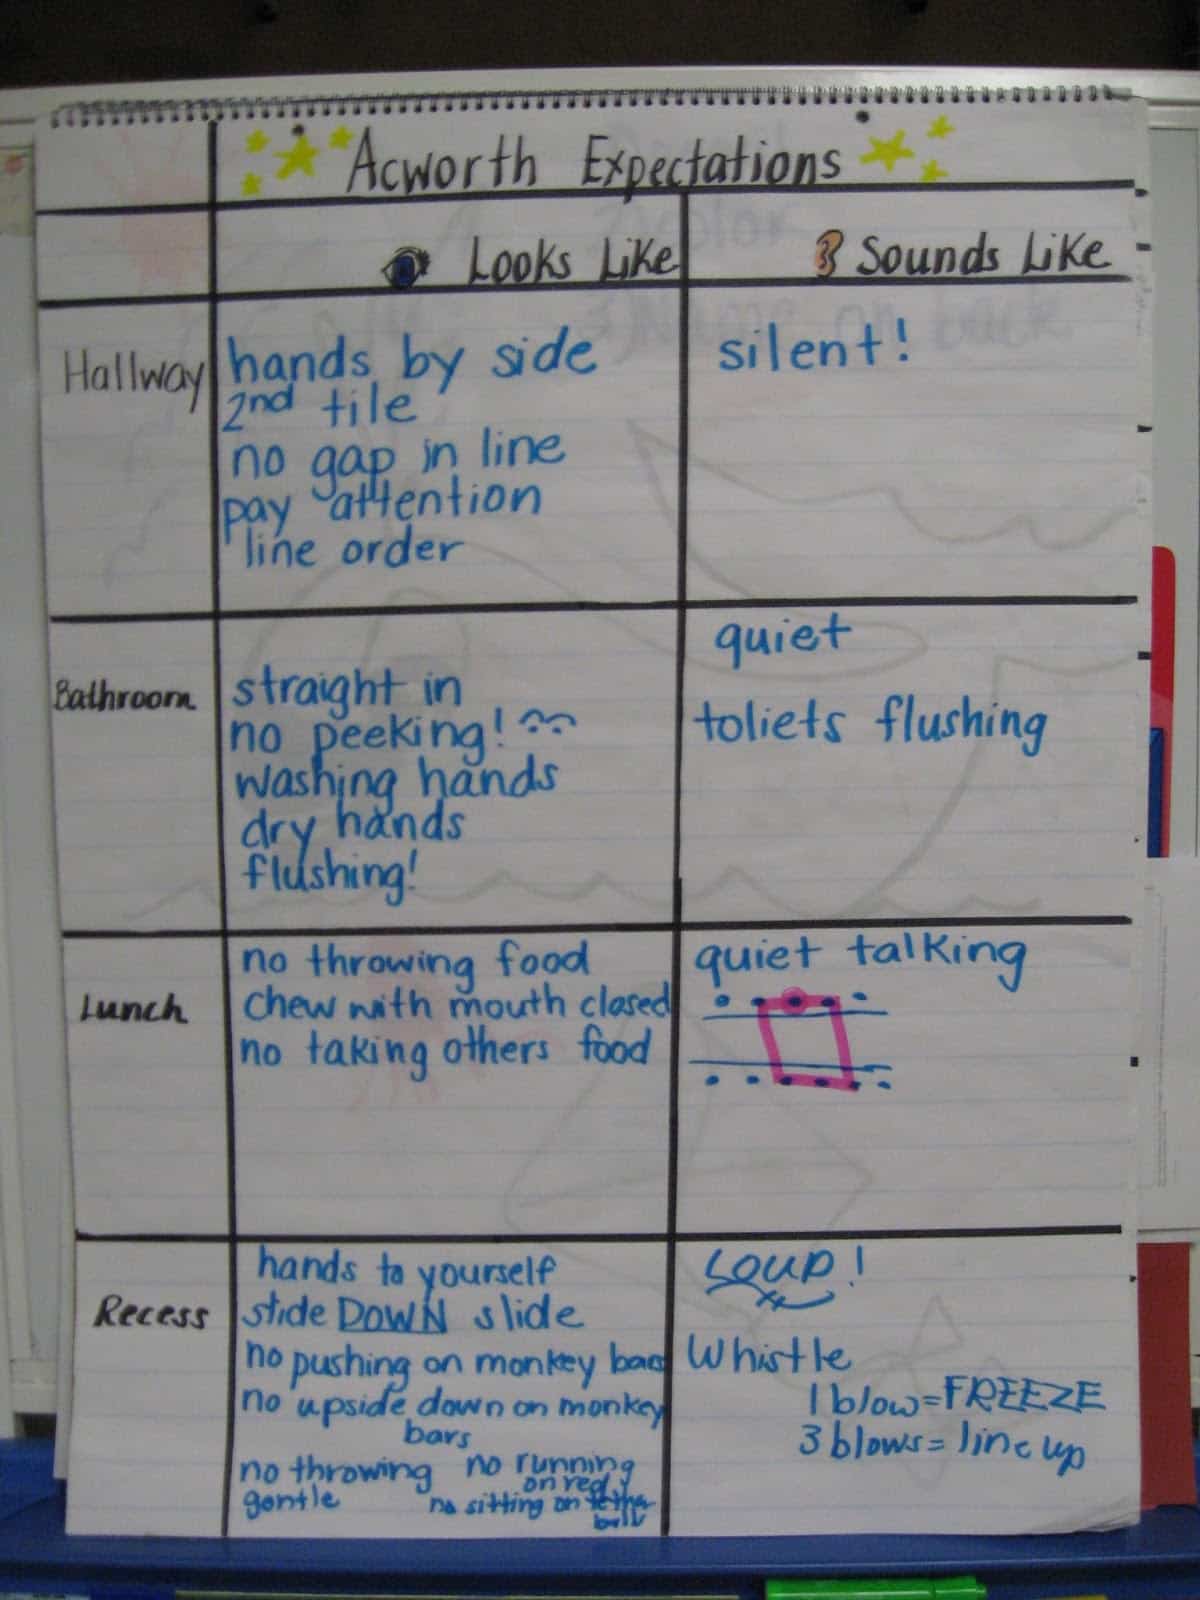 Acworth Expectations
Looks Like
Sounds Like
Hallway
hands by side
2nd tile
no gap in line
pay attention
line order
silent!
Bathroom
straight in
no peeking!
washing hands
dry hands
flushing!
quiet
toliets flushing
Lunch
no throwing food
chew with mouth closed
no taking others food
quiet talking
Recess
hands to yourself
slide DOWN slide
no pushing on monkey bars
no upside down on monkey
bars
no throwing
gentle
no running
on red
no sitting on tether
ball
LOUD!
Whistle
1 blow=FREEZE
3 blows= line up